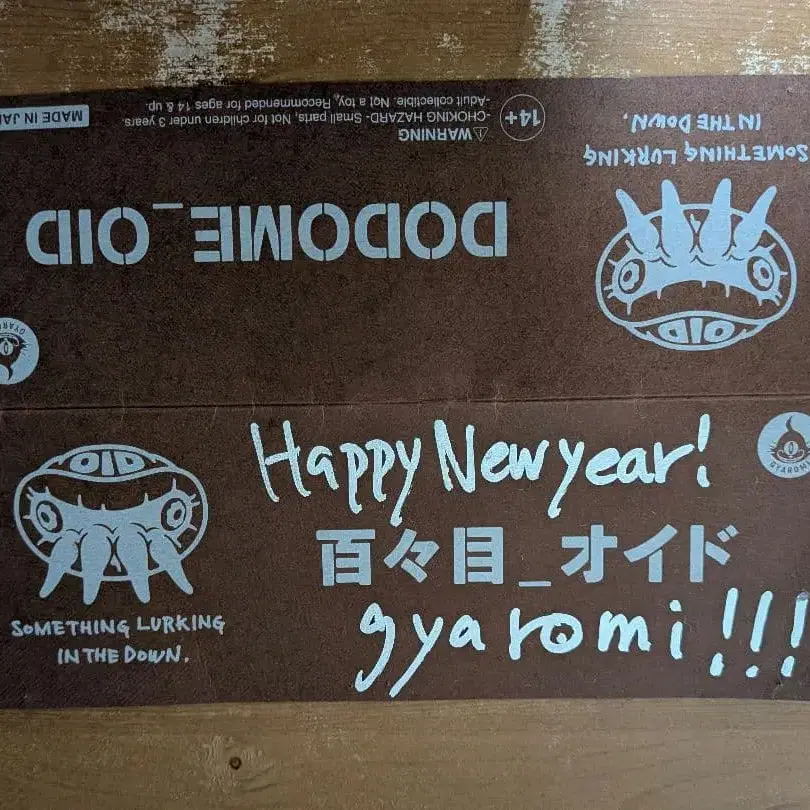 MADE IN JA
⚠WARNING
-CHOKING HAZARD- Small parts, Not for children under 3 years.
-Adult collectible. Not a toy, Recommended for ages 14 & up.
14+
SOMETHING LURKING
IN THE DOWN.
DODOME_OID
OID
GYARO
Happy New year!
GYAROM
OID
百々目_オイド
gyaromi!!!
SOMETHING LURKING
IN THE DOWN.